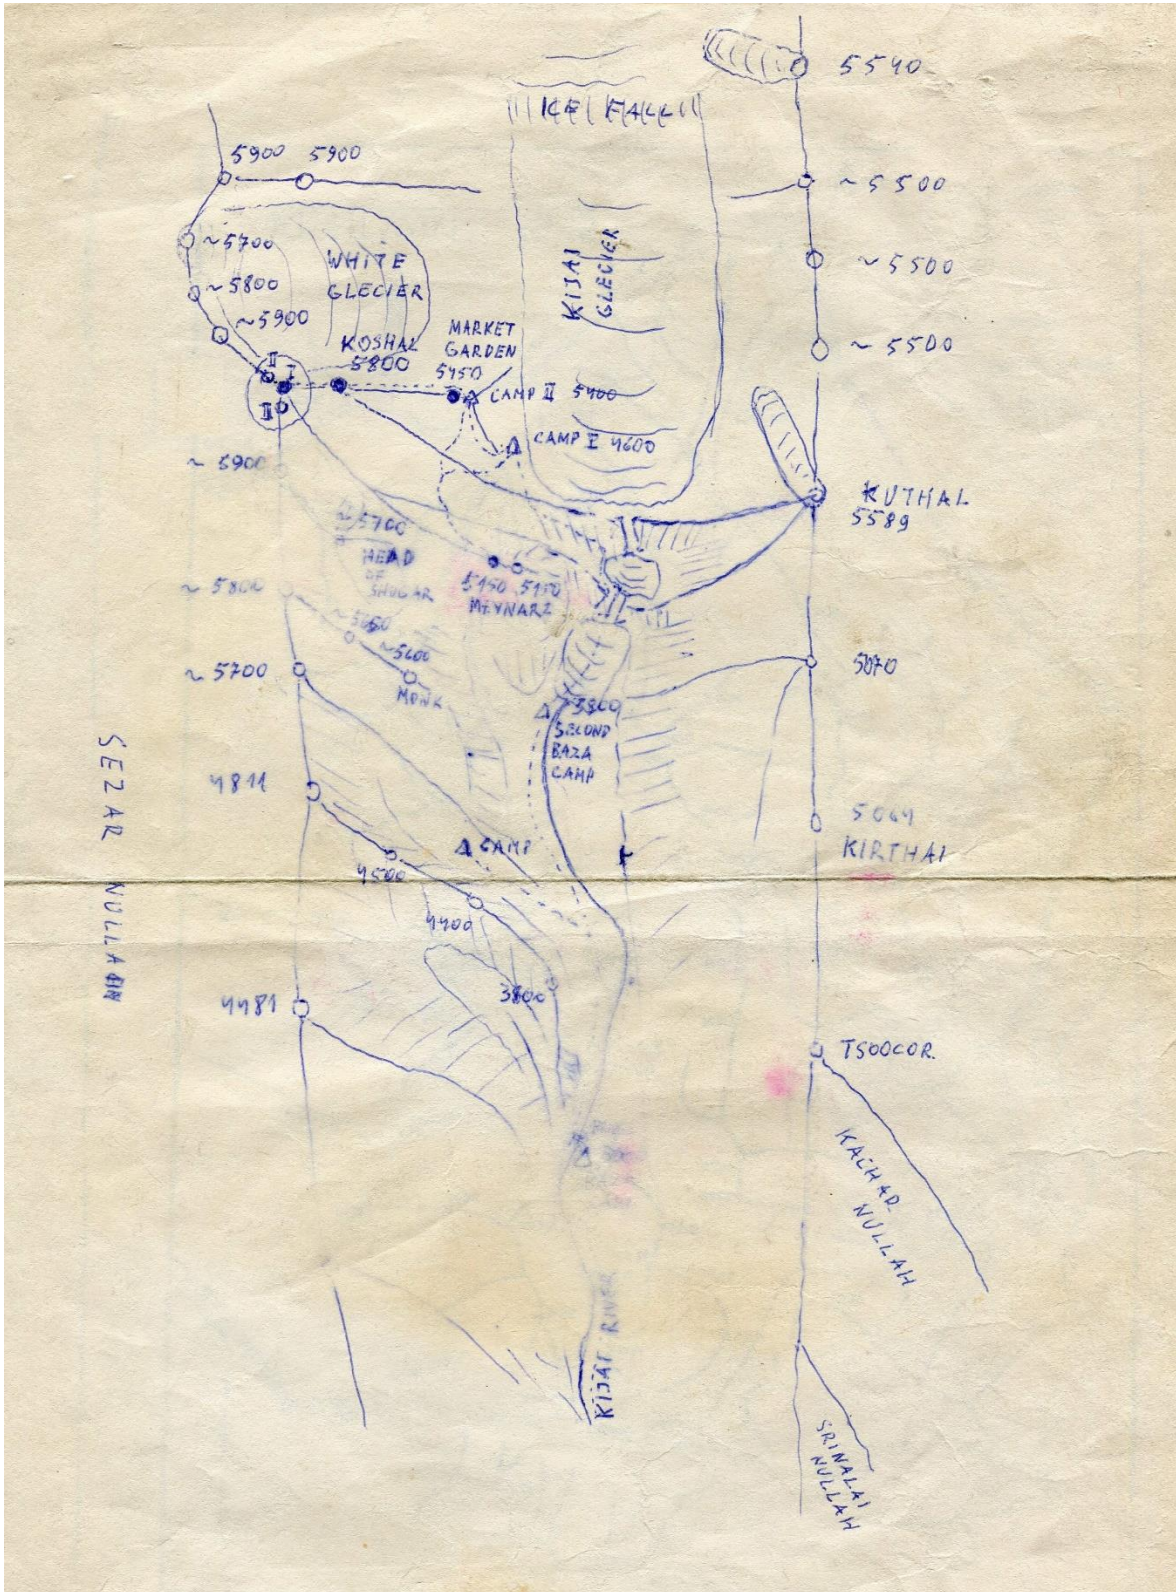 5540
ICE FALL
5900 5900
~ 5500
~5700
WHITE
GLECIER
KIJAI
GLECIER
~ 5500
~5800
~5900
KOSHAL
5800
MARKET
GARDEN
5450
~ 5500
II
I
III
CAMP II 5400
CAMP I 4600
~ 5900
KUTHAL
5589
~5700
HEAD
OF
5450 5450
MŁYNARZ
~ 5800
~5600
MONK
~ 5700
5070
SECOND
BAZA
CAMP
4811
5064
KIRTHAI
CAMP
4500
4400
SEZAR NULLAHH
3800
4481
TSOOCOR.
KACHAR
NULLAH
KIJAI RIVER
SRINALAI
NULLAH